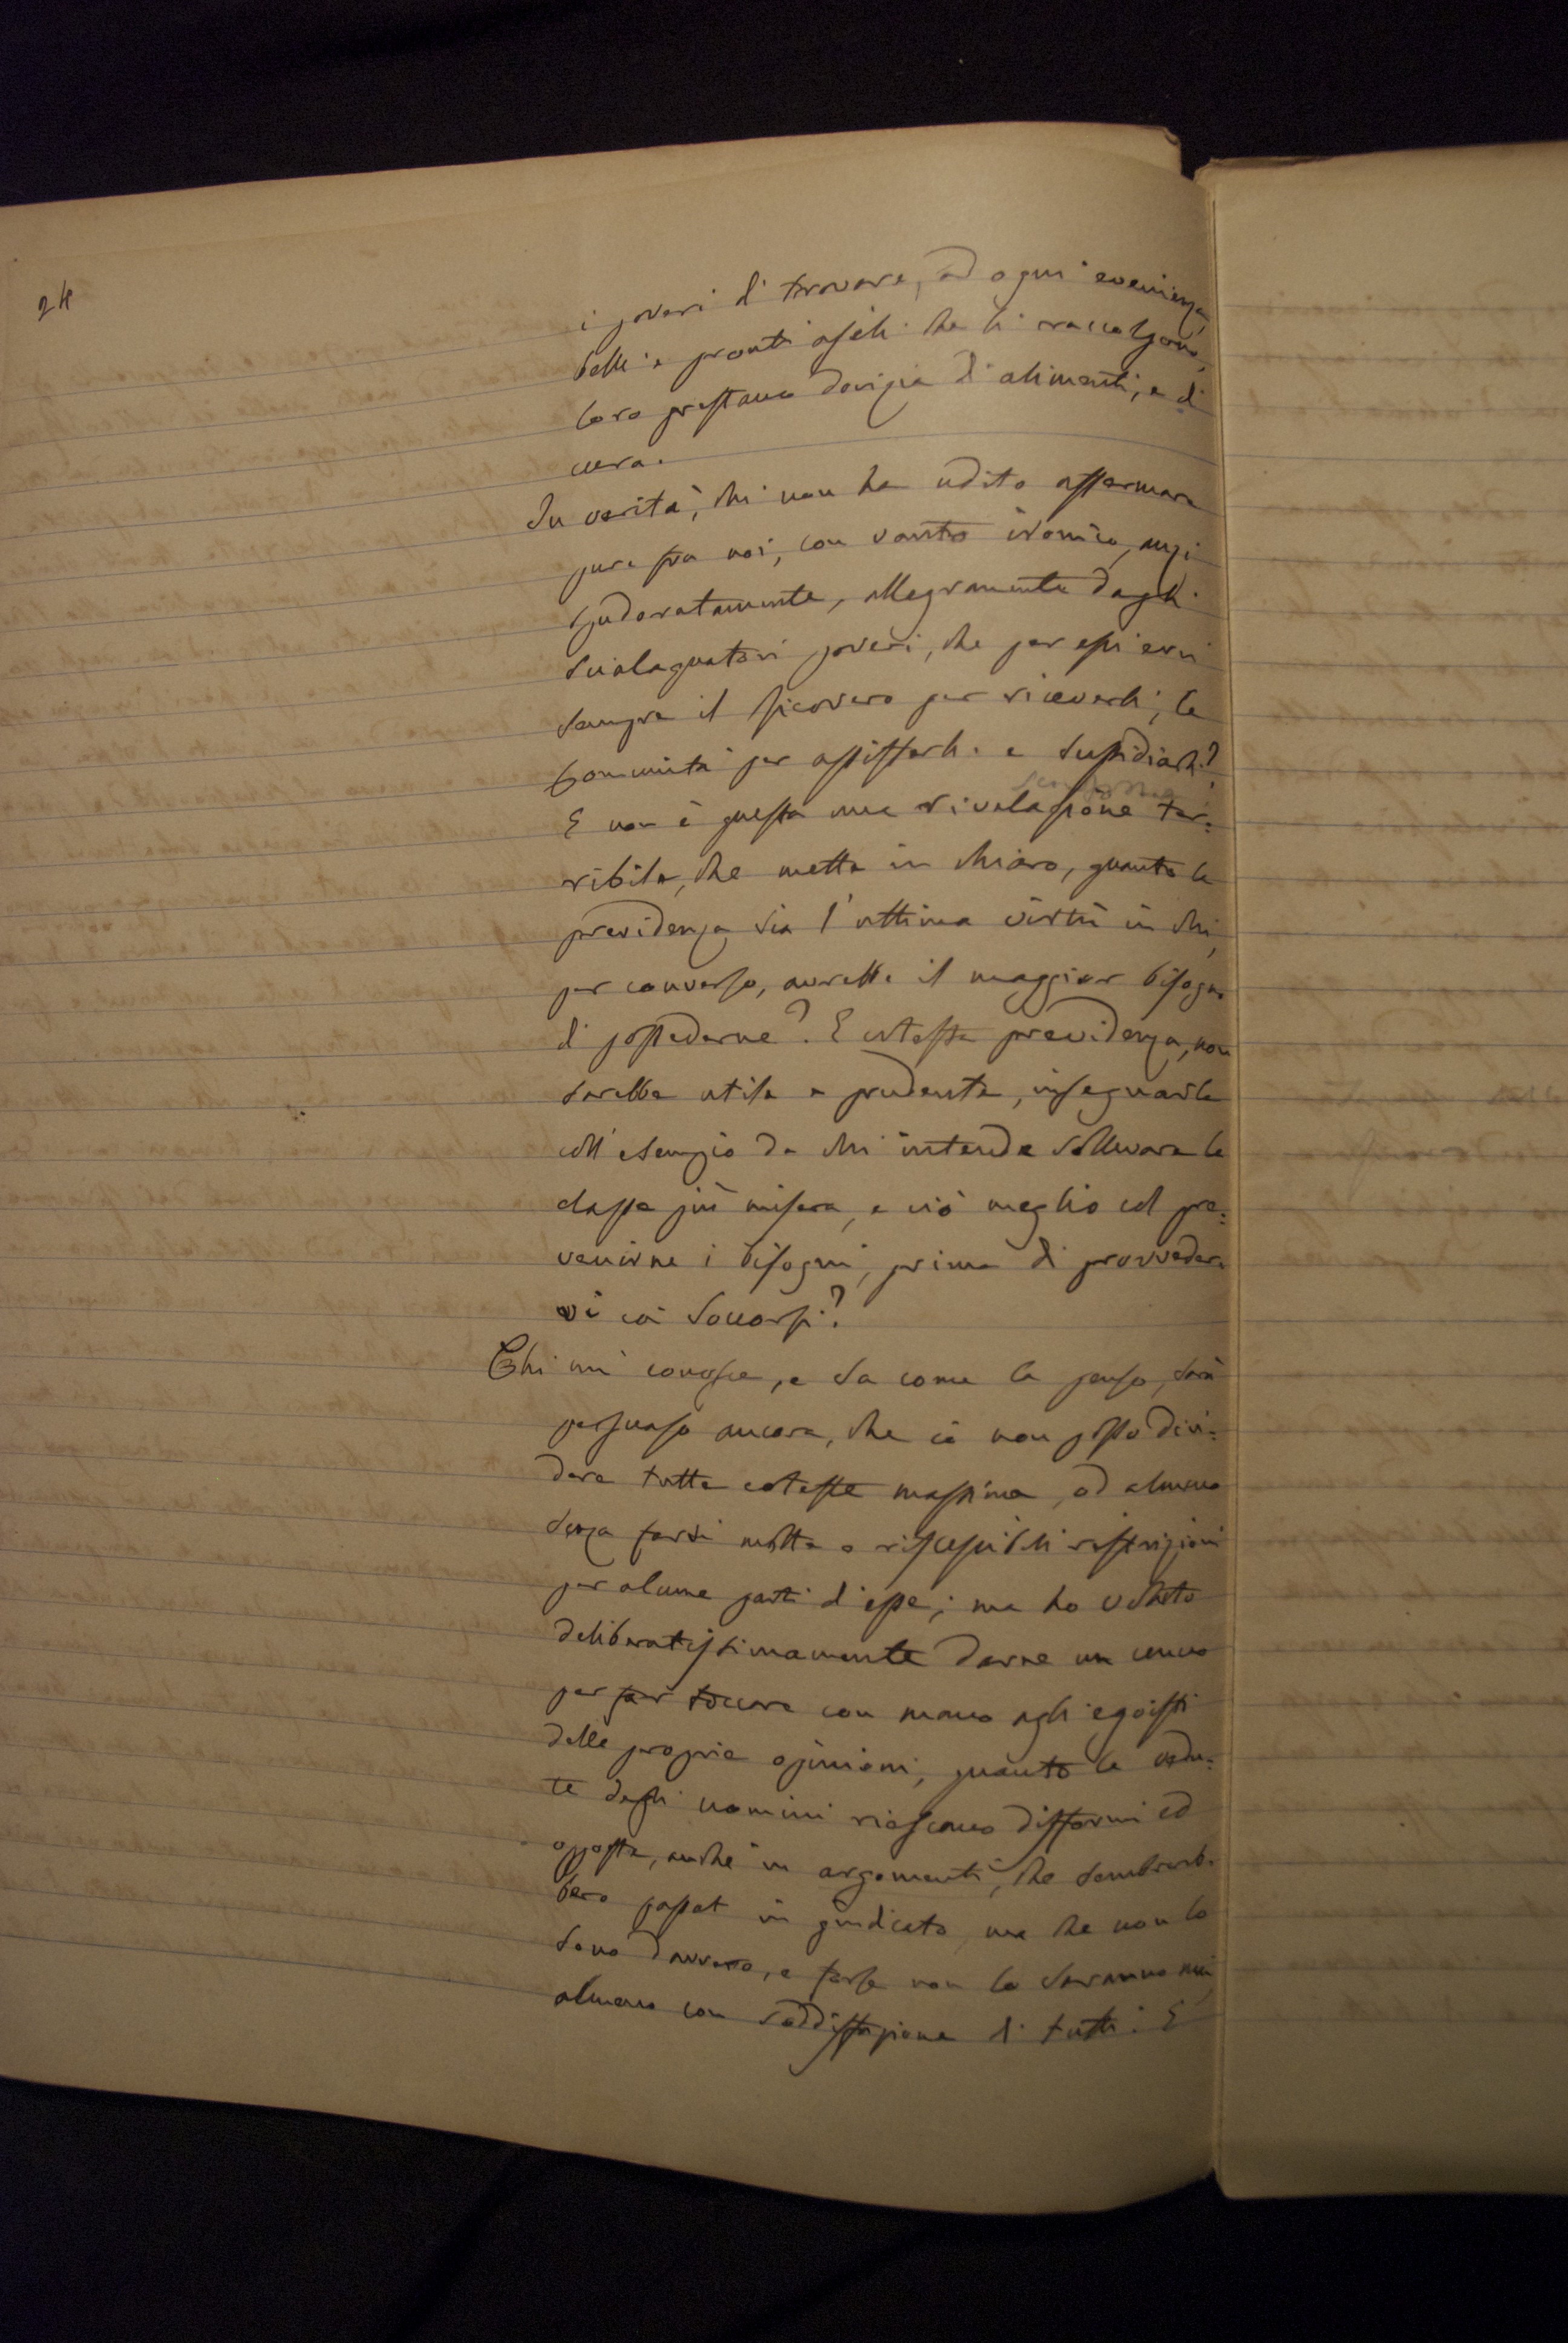 24
i poveri di trovare, ad ogni evenienza,
belli e pronti asili che li raccolgono,
loro prestano dovizia di alimenti, e di
cura.
In verità, chi non ha udito affermare
pure fra noi, con vanto ironico, anzi
spudoratamente, allegramente dagli
scialaquatori poveri, che per essi evvi
sempre il Ricovero per riceverli, la
Comunità per assisterli e sussidiarli?
E non è questa una rivelazione ter=
ribile, che mette in chiaro, quanto la
previdenza sia l'ultima virtù in chi,
per converso, avrebbe il maggior bisogno
di possederne? E cotesta previdenza, non
sarebbe utile e prudente, insegnarla
coll'esempio da chi intende sollevare la
classe più misera, e ciò meglio col pre=
venirne i bisogni, prima di provvedere
vi coi soccorsi?
Chi mi conosce, e sa come la penso, sarà
persuaso ancora, che io non posso divi=
dere tutte coteste massime, od almeno
senza farsi molte e riflessibili restrizioni
per alcune parti di esse; ma ho voluto
deliberatissimamente darne un cenno
per far toccare con mano agli egoisti
delle proprie opinioni, quanto le vedu=
te degli uomini riescano difformi ed
opposte, anche in argomenti, che sembrereb=
bero passat in giudicato, ma che non lo
sono davvero, e forse non lo saranno mai,
almeno con soddisfazione di tutti. E